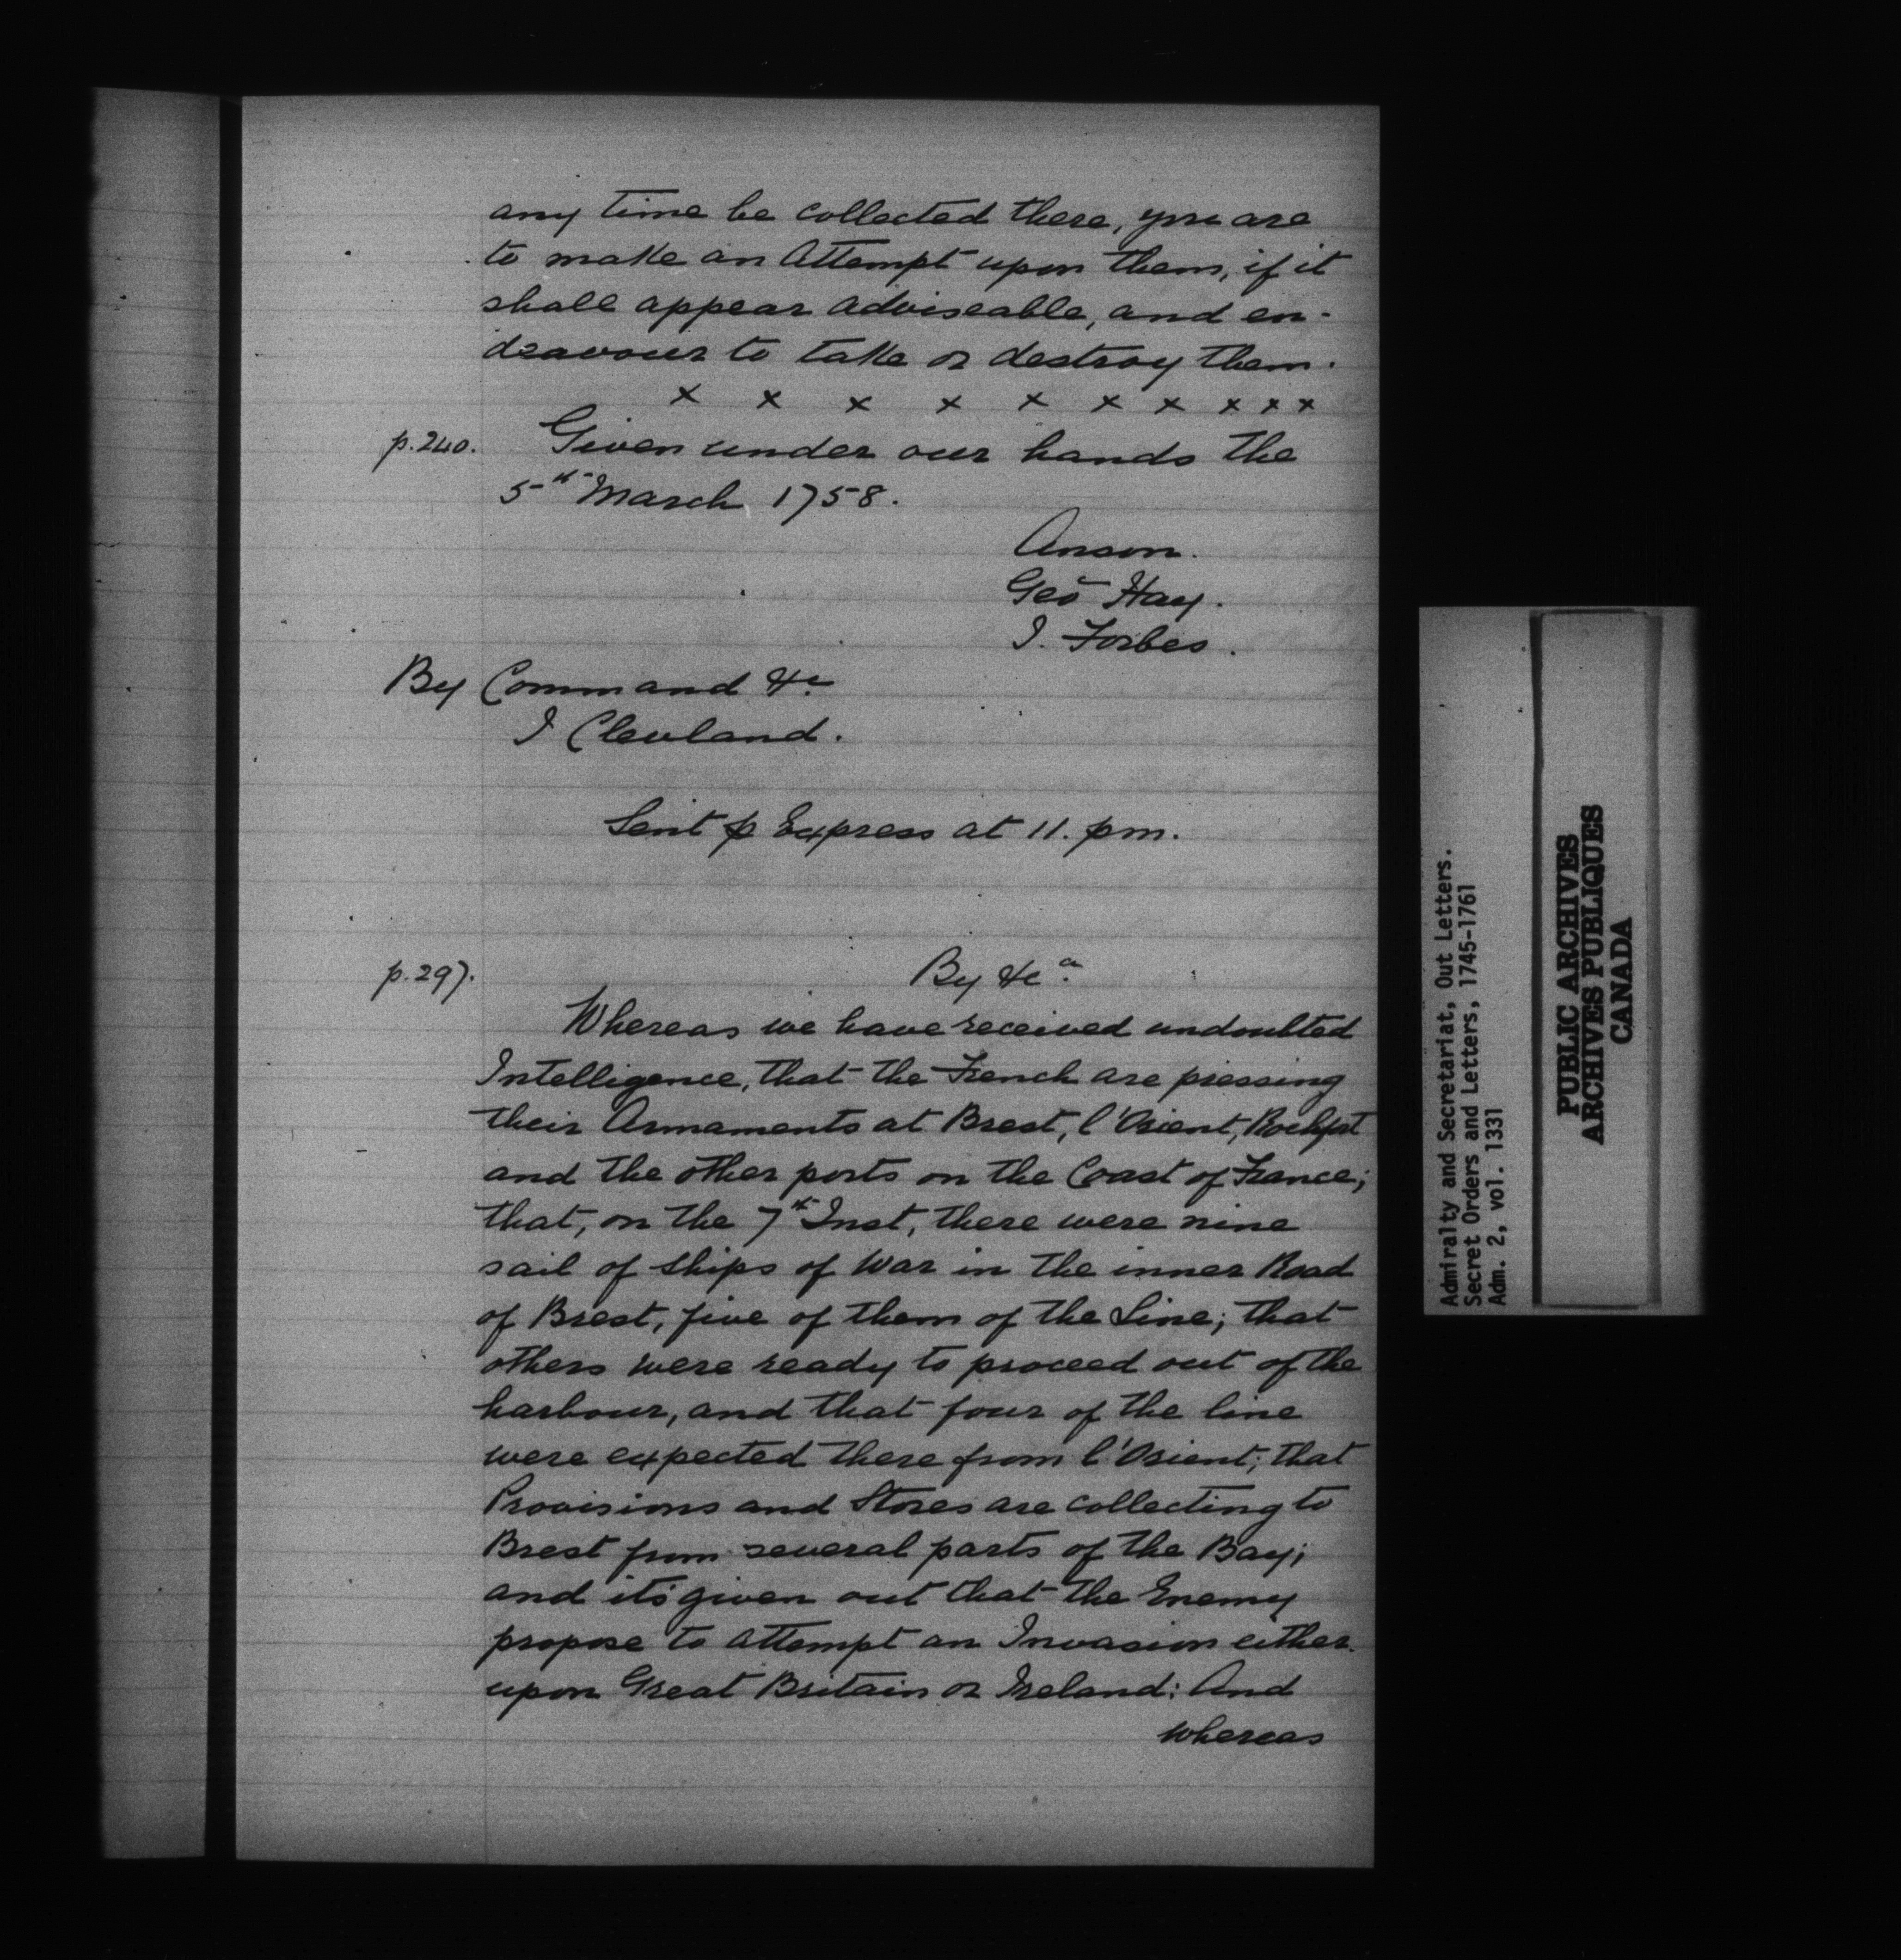 any time be collected there, you are
to make an Attempt upon them, if it
shall appear adviseable, and en-
deavour to take or destroy them.
x x x x x x x x x x
p.240. Given under our hands the
5th March 1758.
Anson.
Geo Hay.
J. Forbes.
By Command &c
J Clevland.
Sent p Express at 11. pm.
p.297. By &ca.
Whereas we have received undoubted
Intelligence, that the French are pressing
their Armaments at Brest, l'Orient, Rochfort
and the other ports on the Coast of France;
that, on the 7th Inst, there were nine
sail of Ships of War in the inner Road
of Brest, five of them of the Line; that
others were ready to proceed out of the
harbour, and that four of the line
were expected there from l'Orient; that
Provisions and Stores are collecting to
Brest from several parts of the Bay;
and its given out that the Enemy
propose to attempt an Invasion either
upon Great Britain or Ireland: And
whereas
Admiralty and Secretariat, Out Letters.
Secret Orders and Letters, 1745-1761
Adm. 2, vol. 1331
PUBLIC ARCHIVES
ARCHIVES PUBLIQUES
CANADA